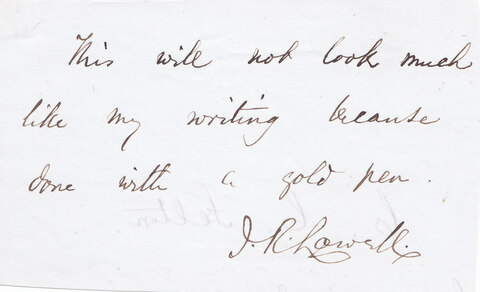 This will not look much
like my writing because
done with a gold pen.
J. R. Lowell.